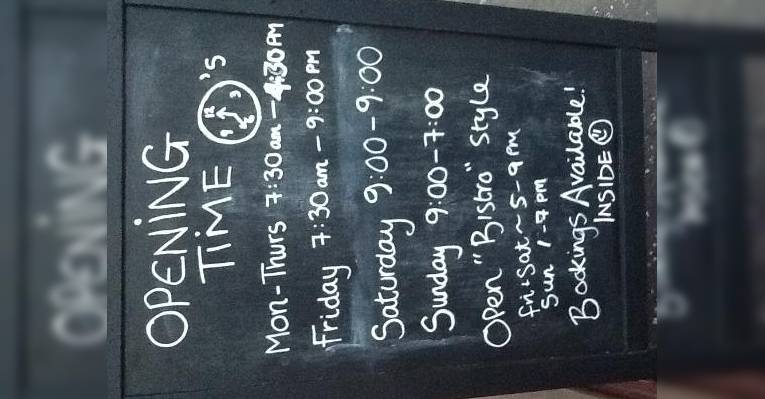 OPENING
TIME 's
Mon-Thurs 7:30am - 4:30PM
Friday 7:30am - 9:00PM
Saturday 9:00-9:00
Sunday 9:00-7:00
Open "Bistro" Style
Fri & Sat ~ 5-9PM
Sun 1-7PM
Bookings Available!
INSIDE